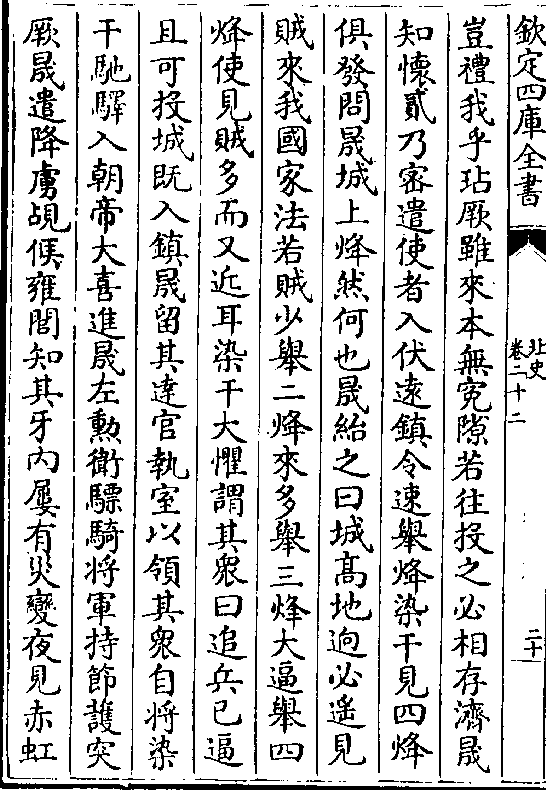 欽定四庫全書
北史
卷二十二
二十
豈禮我乎玷厥雖來本無寃隙若往投之必相存濟晟
知懷貳乃密遣使者入伏遠鎮令速舉烽染干見四烽
俱發問晟城上烽然何也晟紿之曰城髙地逈必遙見
賊來我國家法若賊少舉二烽來多舉三烽大逼舉四
烽使見賊多而又近耳染干大懼謂其衆曰追兵已逼
且可投城既入鎮晟留其達官執室以領其衆自將染
干馳驛入朝帝大喜進晟左勲衛驃騎将軍持節䕶突
厥晟遣降虜覘候雍閭知其牙内屢有災變夜見赤虹